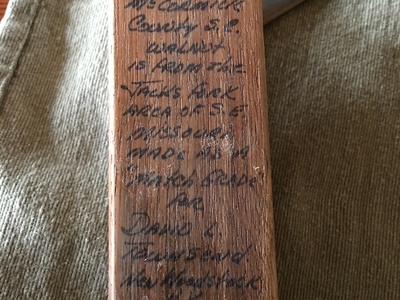 McCORMICK
COUNTY S.C.
WALNUT
IS FROM THE
JACKS FORK
AREA OF S.E.
MISSOURI
MADE AS A
"MATCH GRADE"
FOR
DAVID L.
TOWNSEND
NEW WOODSTOCK